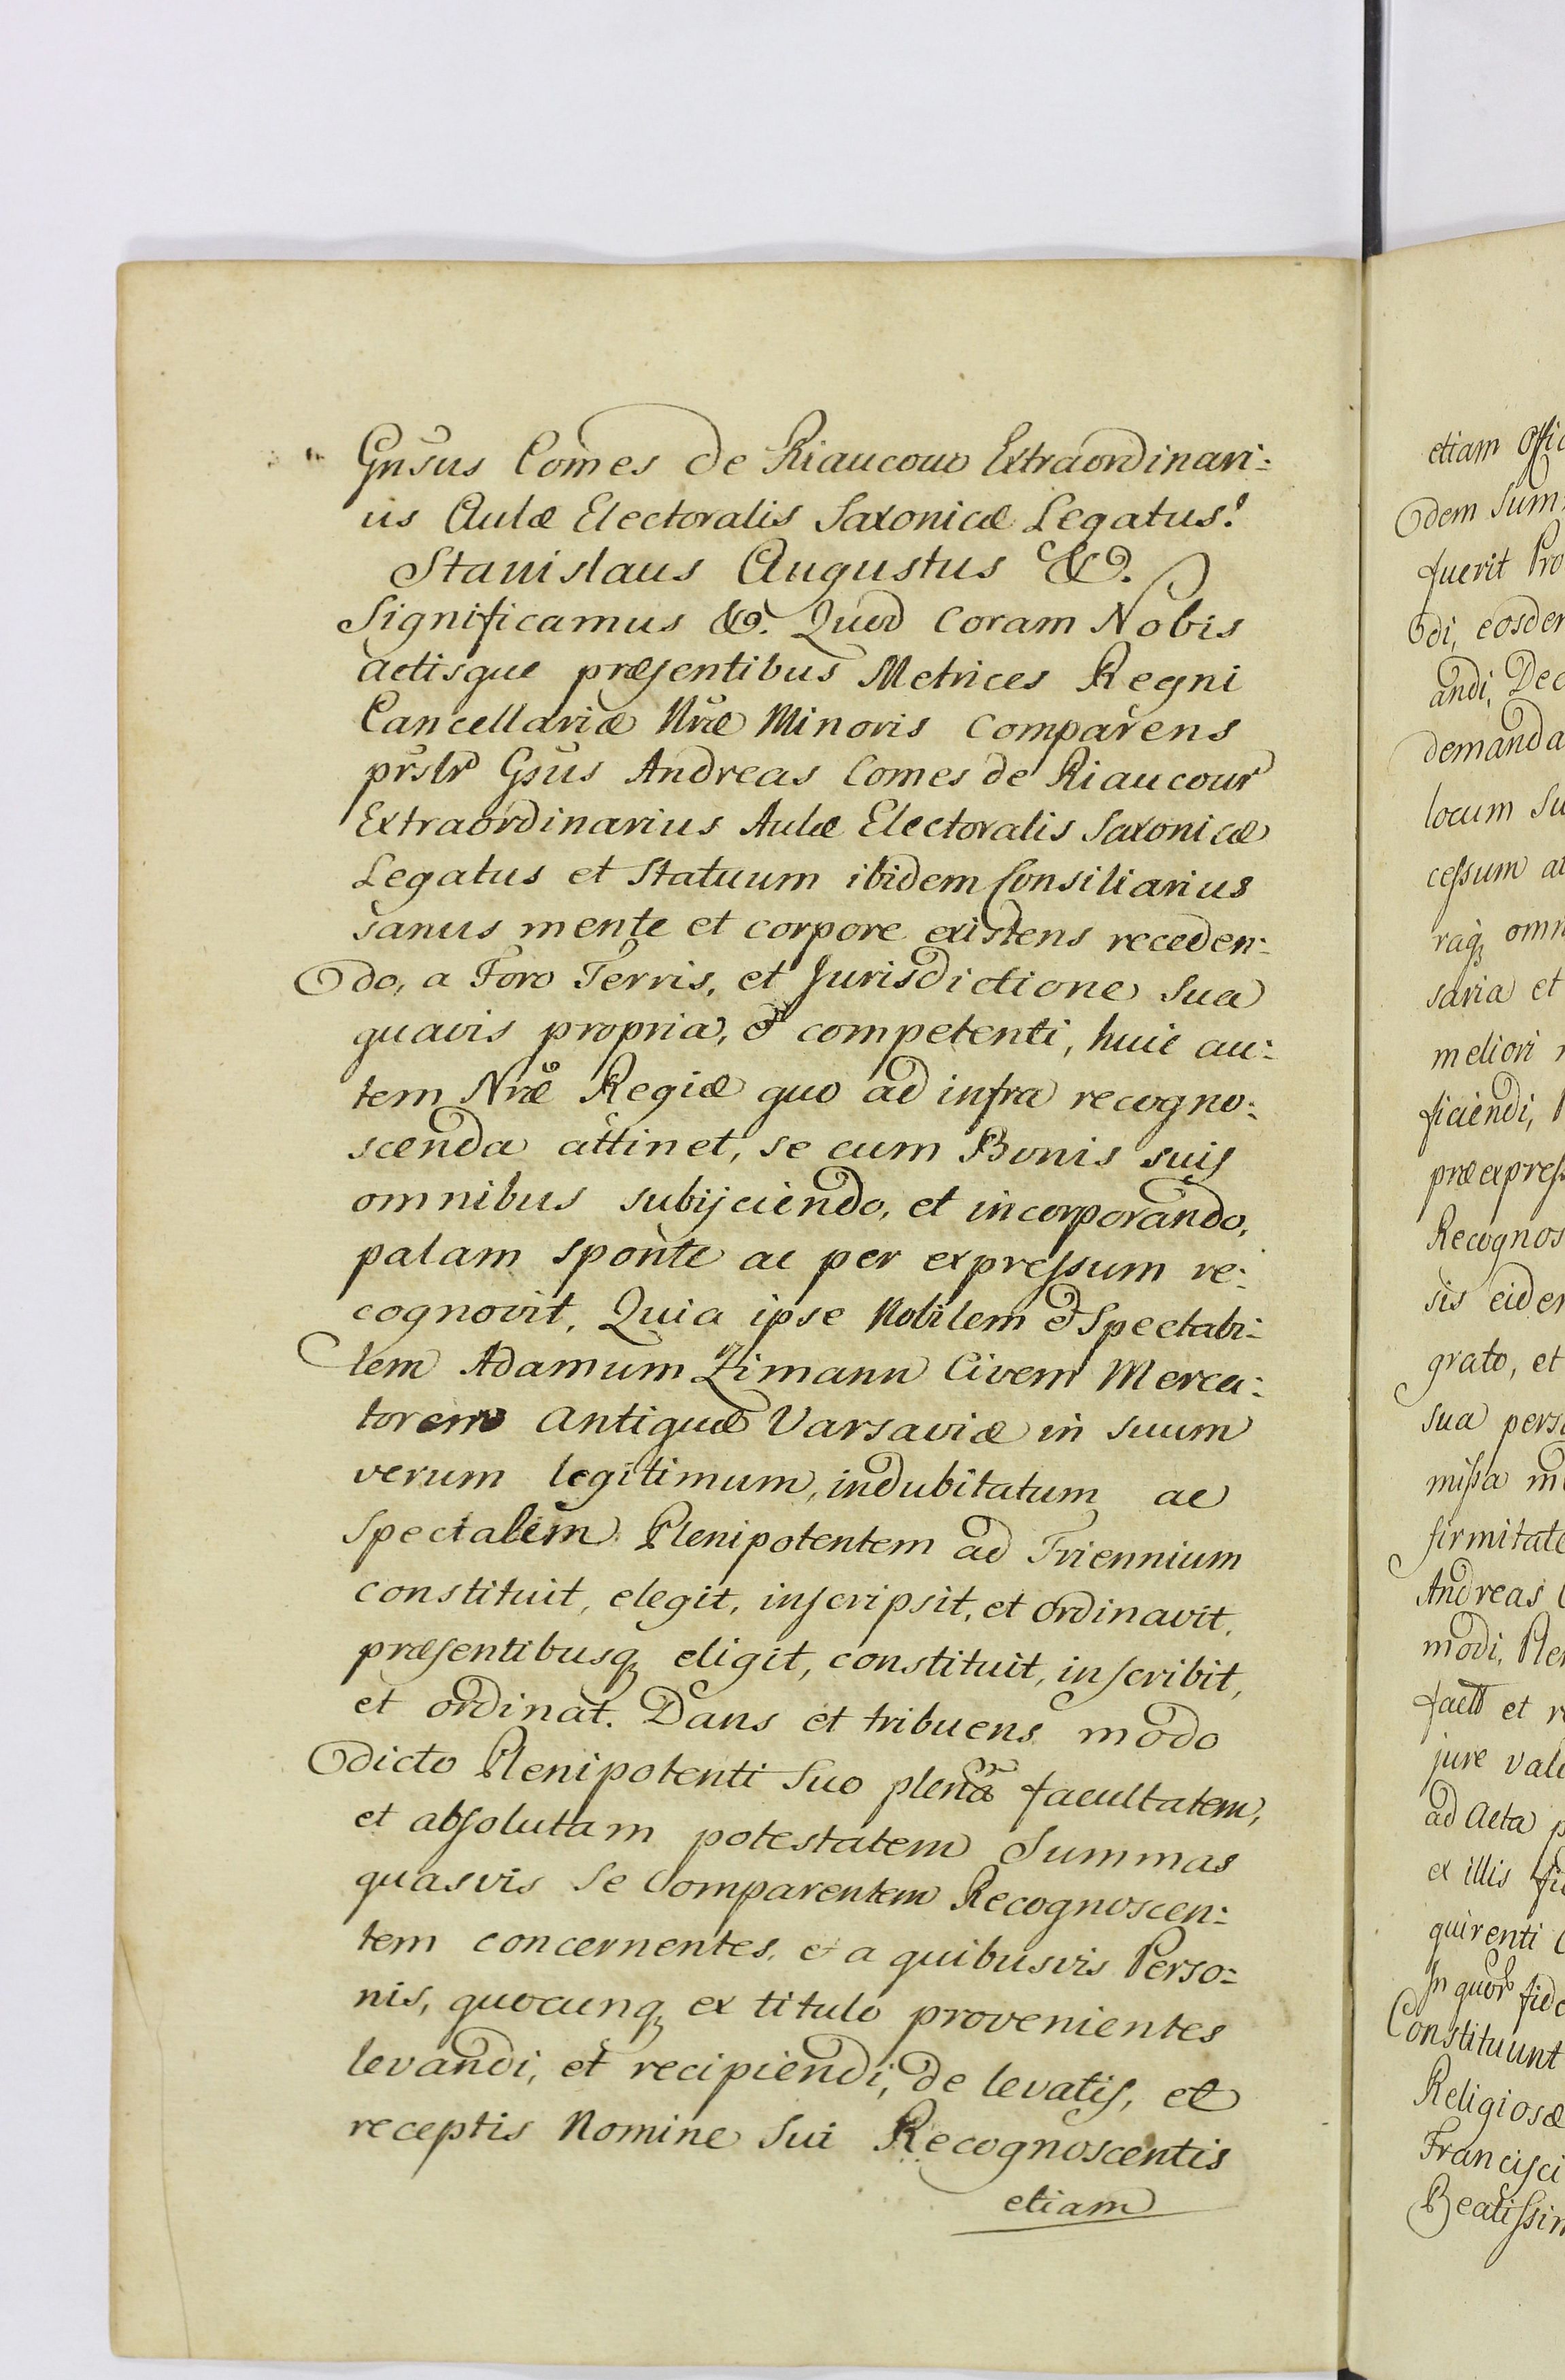 Gnsus Comes de Riaucour Extraordinari:
us Aulæ Electoralis Saxonicæ Legatus.
Stanislaus Augustus &c.
Significamus &c. Quod Coram Nobis
actisque præsentibus Metrices Regni
Cancellariæ Nræ Minoris Comparens
prslr Gsus Andreas Comes de Riaucour
Extraordinarius Aulæ Electoralis Saxonicæ
Legatus et Statuum ibidem Consiliarius
sanus mente et corpore existens receden:
do, a Foro Terris, et Jurisdictione sua
quavis propria, et competenti, huic au:
tem Nræ Regiæ quo ad infra recogno:
scenda attinet, se cum Bonis suis
omnibus subijciendo, et incorporando,
palam sponte ac per expressum re:
cognovit, Quia ipse Nobilem et Spectabi:
lem Adamum Zimann Civem Merca:
torem Antiquæ Varsaviæ in suum
verum legitimum, indubitatum ac
Specialem Plenipotentem ad Triennium
constituit, elegit, inscripsit, et ordinavit,
præsentibusq; eligit, constituit, inscribit,
et ordinat. Dans et tribuens modo
dicto Plenipotenti Suo plenam facultatem,
et absolutam potestatem Summas
quasvis Se Comparentem Recognoscen:
tem concernentes, et a quibusvis Perso:
nis, quocunq; ex titulo provenientes
levandi, et recipiendi, de levatis, et
receptis Nomine Sui Recognoscentis
etiam
etiam
dem Sum
fuerit Pro
di, eosdem
andi, Dec
demanda
locum Su
cessum
raq; omn
saria et
meliori
ficiendi,
præexpress
Recognos
sis eidem
grato, et
sua pers
missa
firmitate
Andreas
modi, Plen
facto et
jure vale
ad Acta
ex illis
quirenti
In quor fide
Constituunt
Religiosæ
Francisci
Beatissim